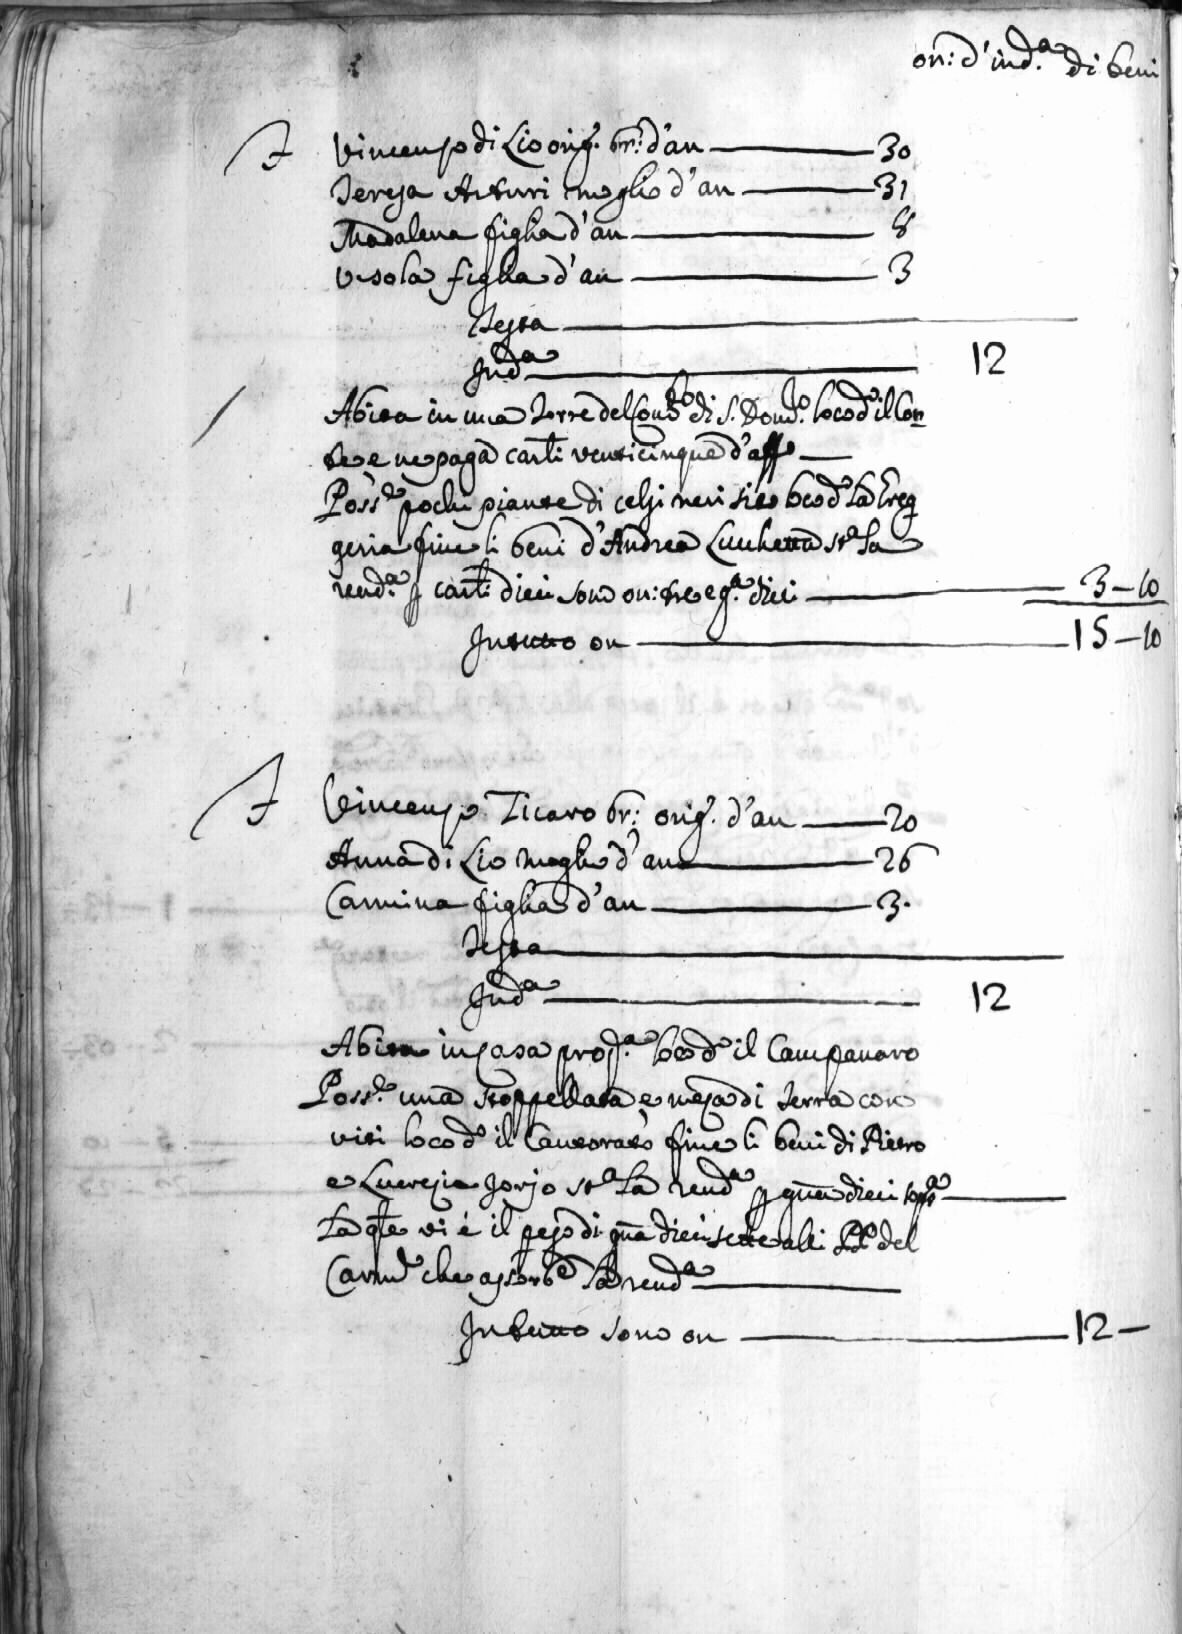 on: d'ind.ª di beni
Vincenzo di Lio orig.º br: d'an — 30
Teresa Arturi moglie d'an — 31
Madalena figlia d'an — 8
Vsola figlia d'an — 3
Testa —
Ind.ª — 12
Abita in una Torre del Conv.to di S. Dom.co loco d.º il Con
te e ne paga carl.i venticinque d'aff.º —
Poss.e pochi piante di celsi neri site loco d.º la
geria fine li beni d'Andrea Lucchetta st.ª la
rend.ª p carl.i dieci sono on: tre e g.ª dieci — 3–10
In tutto on — 15–10
Vincenzo Ticaro br: orig.º d'an — 20
Anna di Lio moglie d'an — 26
Carmina figlia d'an — 3.
Testa —
Ind.ª — 12
Abita in casa prop.ª loco d.º il Campanaro
Poss.e una stoppellata e meza di terra con
viti loco d.º il Cantorato fine li beni di Pietro
e Lucrezia Iorio st.ª la rend.ª p dieci sopr.ª —
La qle vi è il peso di gna dieci sette alli PP. del
Carm.e che assorbe la rend.ª —
In tutto sono on — 12 –